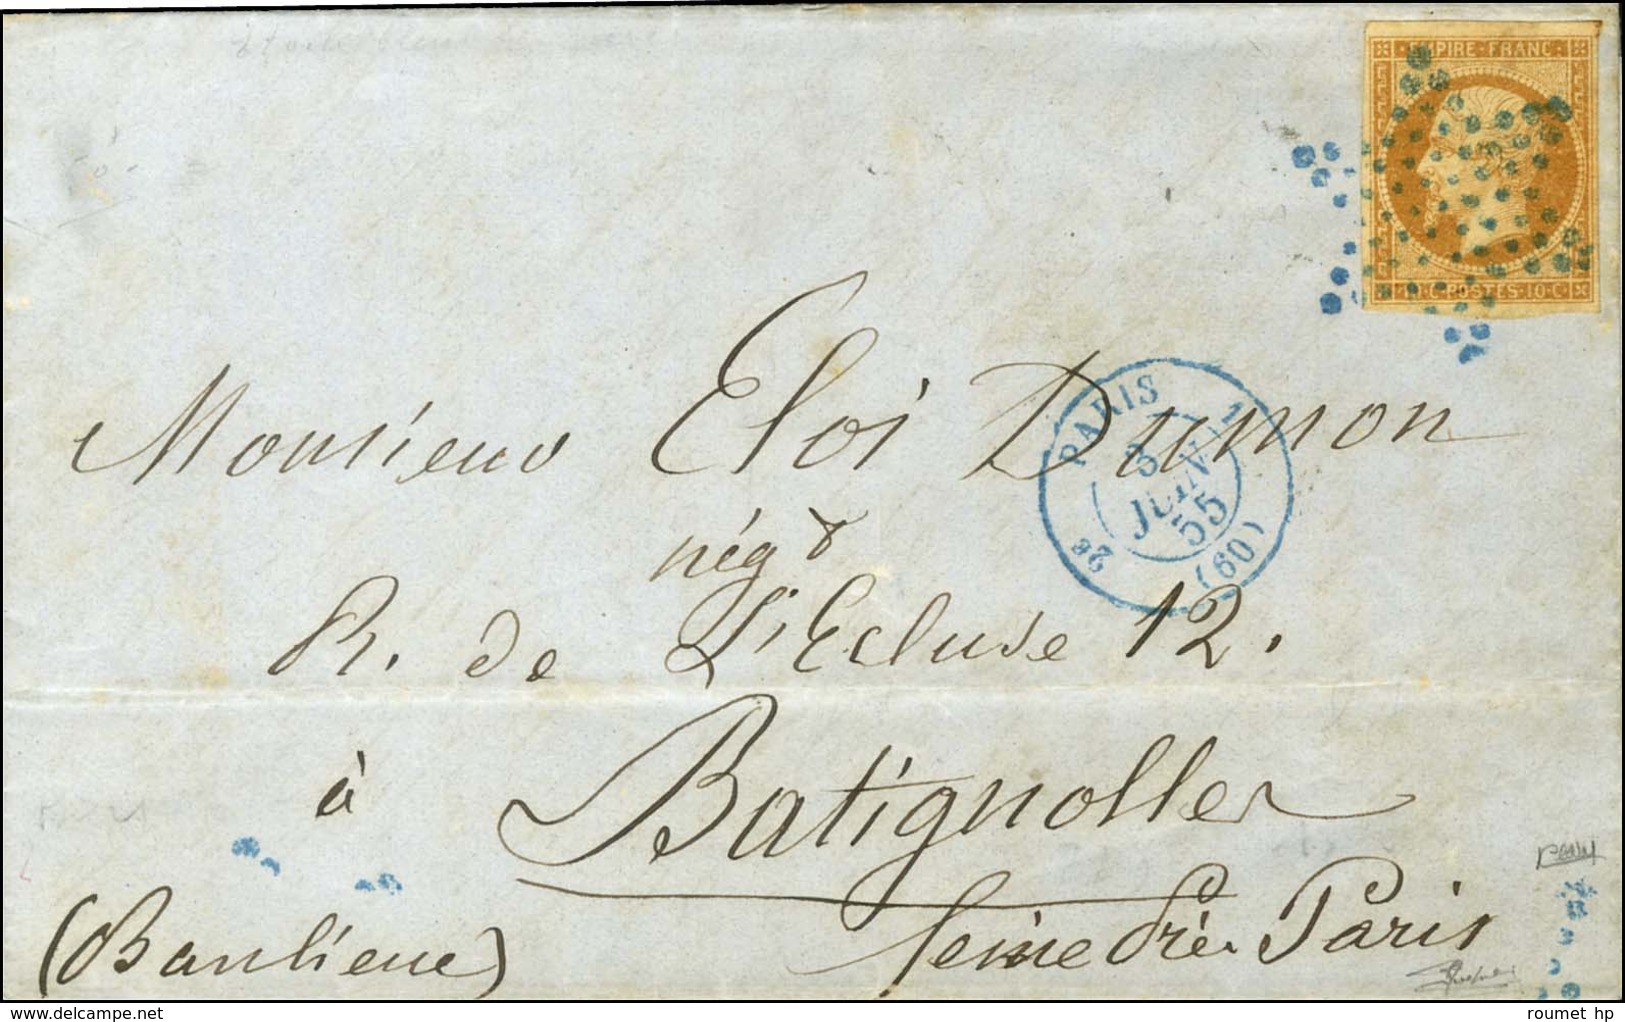 EMPIRE · FRANC ·
10 · C · POSTES · 10 · C ·
Monsieur Eloi Dumon
négt
R. de L'Ecluse 12.
PARIS
3
JUIN
55
(60)
2e
à Batignolles
(Banlieue) Seine Près Paris
www.delcampe.net
roumet hp